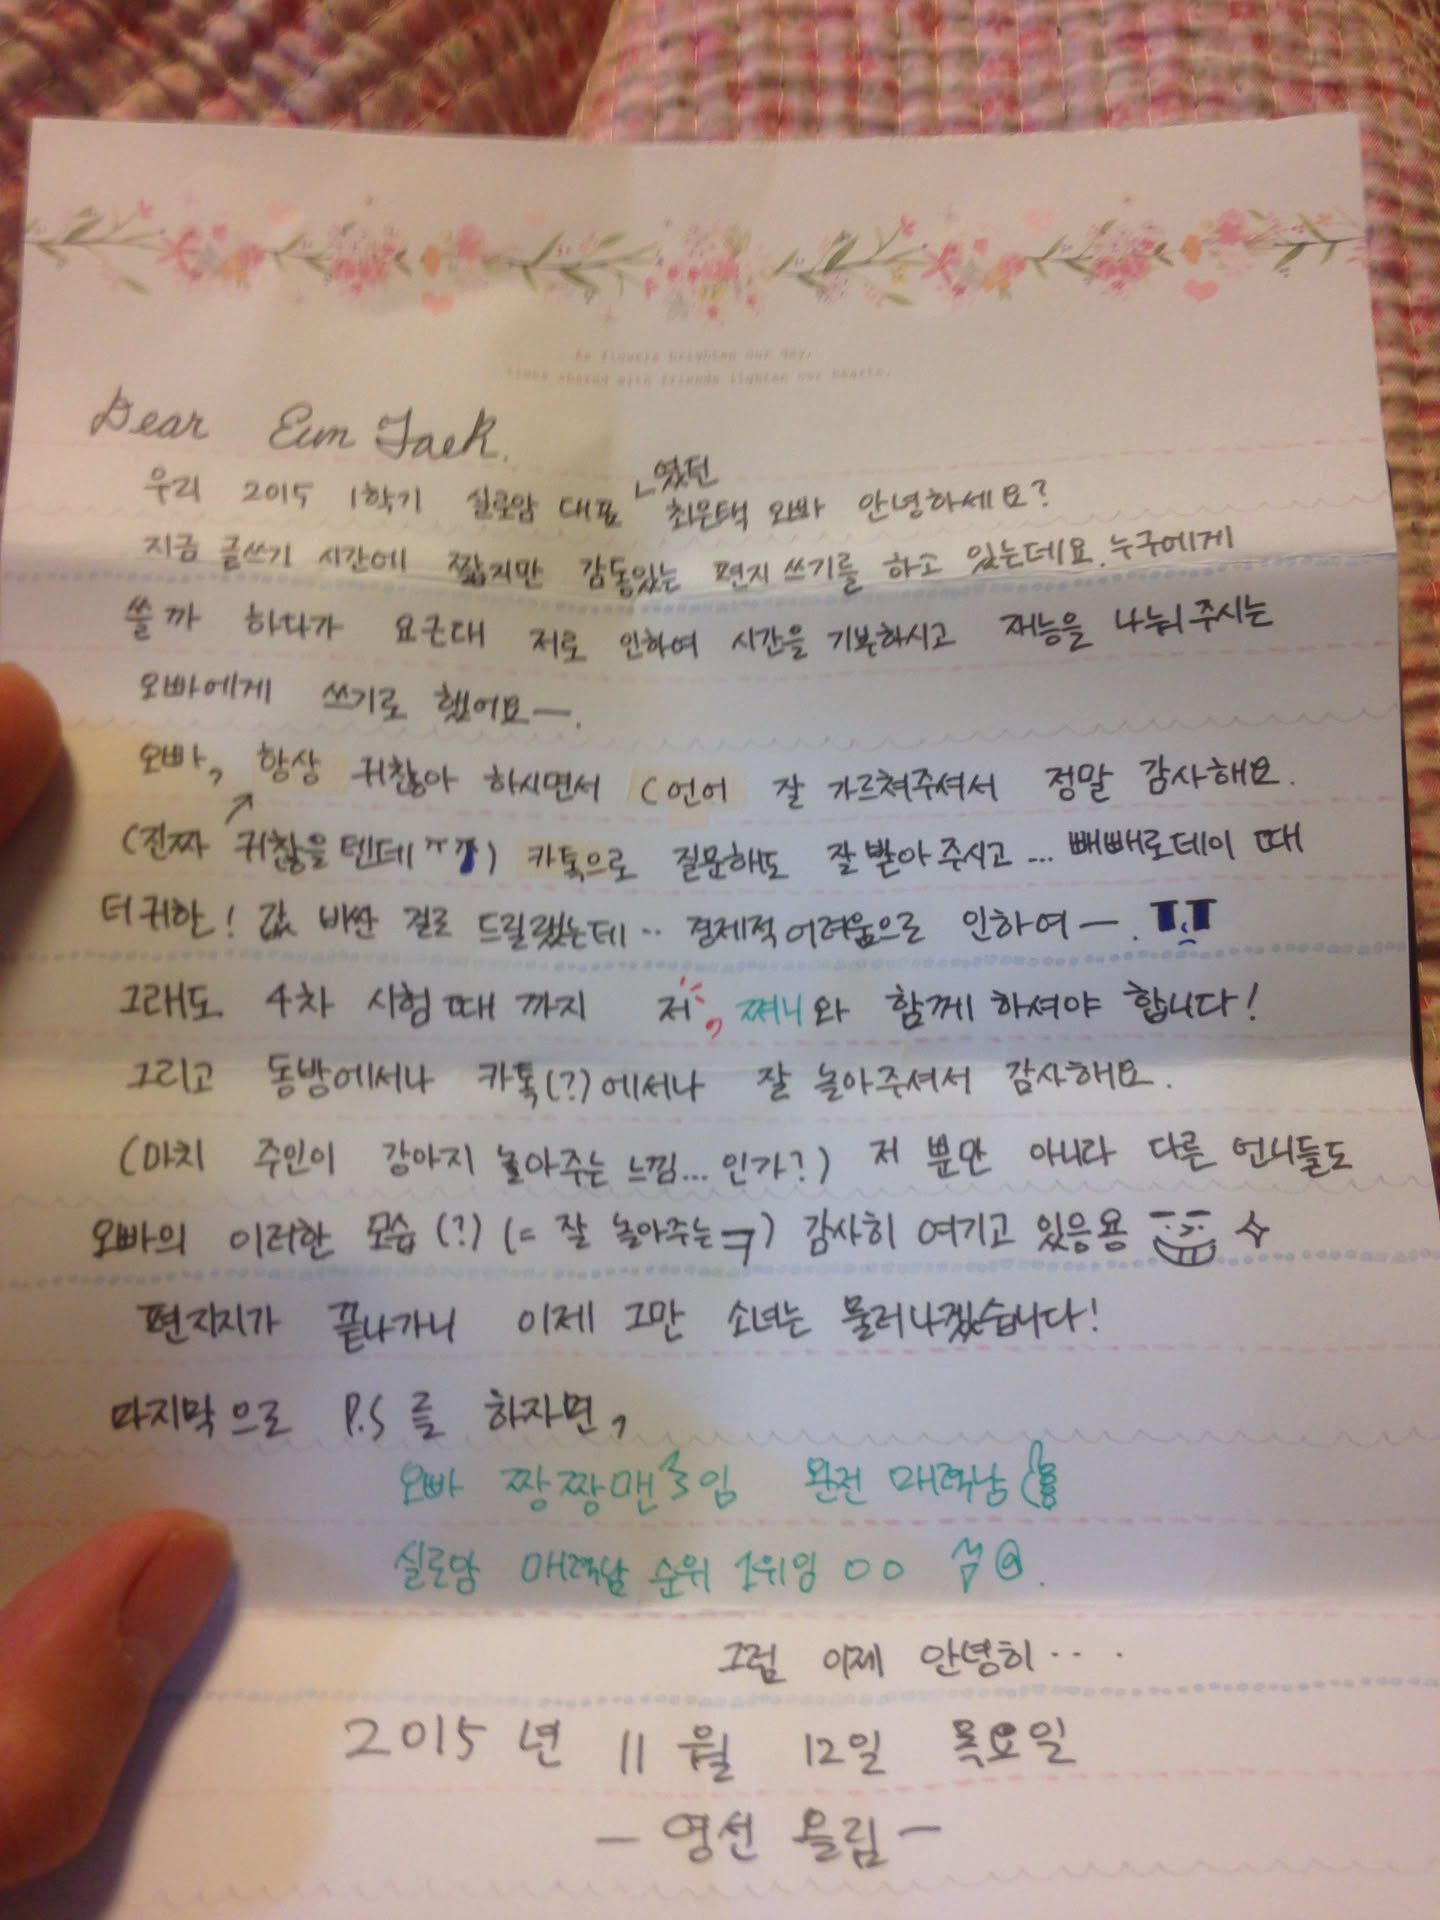 As flowers brighten our day,
times shared with friends lighten our hearts.
Dear Eun Taek.
우리 2015 1학기 실로암 대표였던 최은택 오빠 안녕하세요?
지금 글쓰기 시간에 짧지만 감동있는 편지 쓰기를 하고 있는데요. 누구에게
쓸까 하다가 요근대 저로 인하여 시간을 기부하시고 재능을 나눠주시는
오빠에게 쓰기로 했어요―.
오빠, 항상 귀찮아 하시면서 C언어 잘 가르쳐주셔서 정말 감사해요.
(진짜 귀찮을텐데 ㅠㅠ) 카톡으로 질문해도 잘 받아주시고... 빼빼로데이 때
더 귀한! 값 비싼 걸로 드릴랬는데.. 경제적 어려움으로 인하여―. ㅠㅠ
그래도 4차 시험때 까지 저, 쪄니와 함께 하셔야 합니다!
그리고 동방에서나 카톡(?)에서나 잘 놀아주셔서 감사해요.
(마치 주인이 강아지 놀아주는 느낌... 인가?) 저 뿐만 아니라 다른 언니들도
오빠의 이러한 모습(?) (= 잘 놀아주는ㅋ) 감사히 여기고 있응용
편지지가 끝나가니 이제 그만 소녀는 물러나겠습니다!
마지막으로 P.S를 하자면,
오빠 짱짱맨임 완전 매력남
실로암 매력남 순위 1위임 ㅇㅇ
그럼 이제 안녕히...
2015년 11월 12일 목요일
― 영선 올림 ―